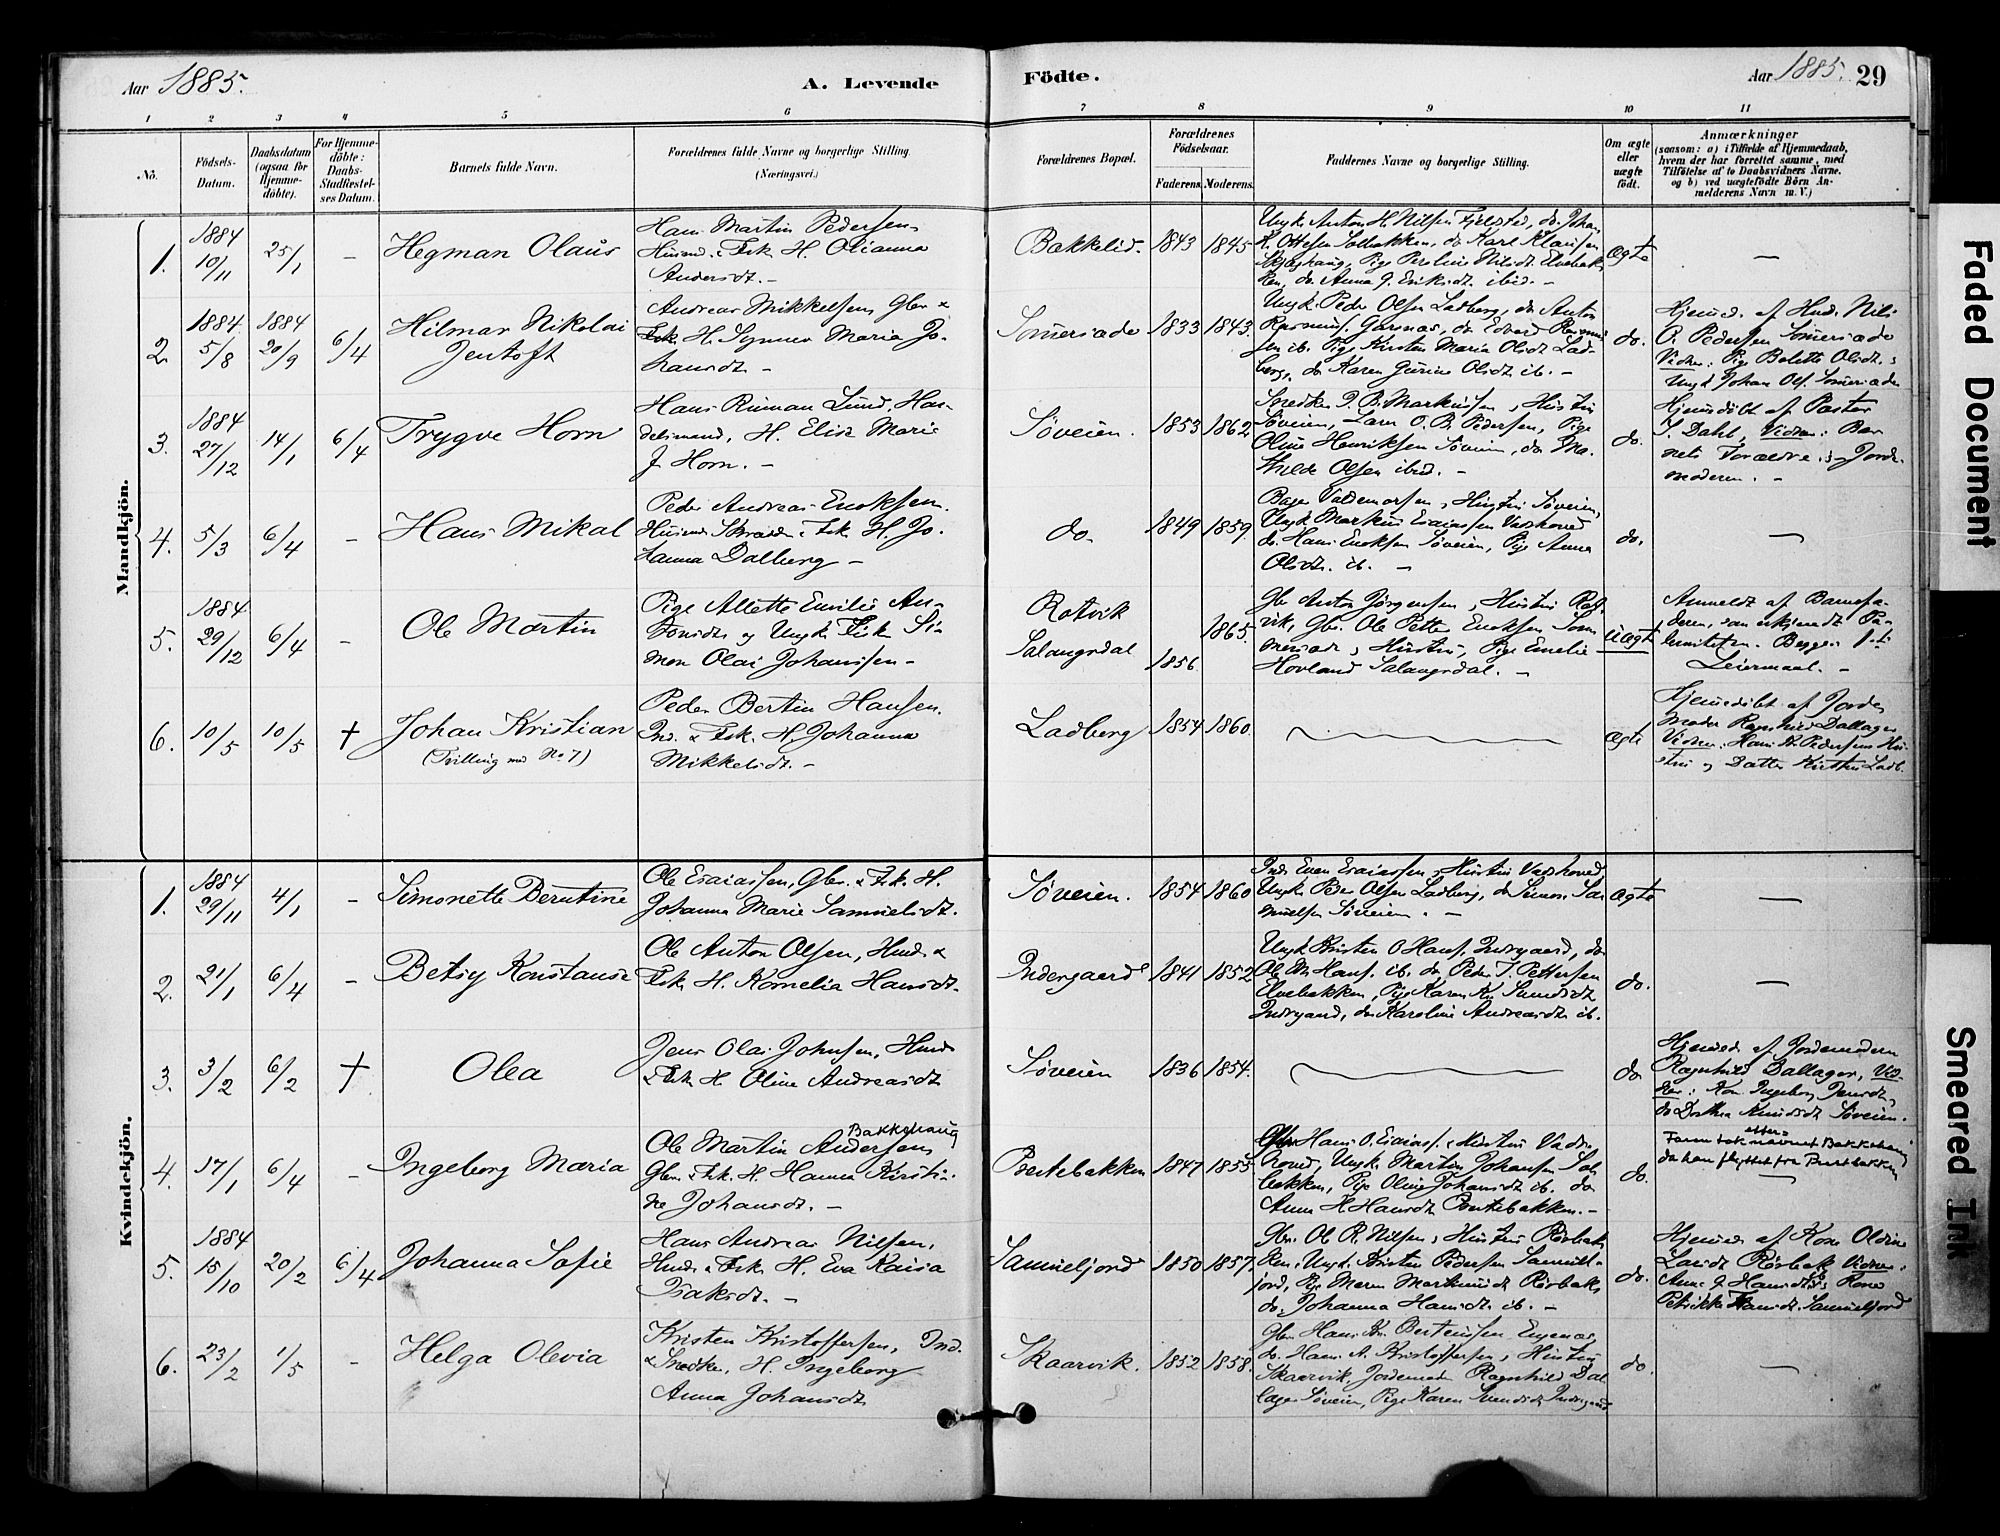 Aar 1885.
A. Levende
Födte.
Aar 1885. 29
1 2 3 4 5 6 7 8 9 10 11
No.
Födsels-
Datum.
Daabsdatum
(ogsaa for
Hjemme-
döbte).
For Hjemme-
döbte:
Daabs-
Stadfæstel-
ses Datum.
Barnets fulde Navn.
Forældrenes fulde Navne og borgerlige Stilling.
(Næringsvei.)
Forældrenes Bopæl.
Forældrenes
Födselsaar.
Faderens. Moderens.
Faddernes Navne og borgerlige Stilling.
Om ægte
eller
uægte
födt.
Anmærkninger
(saasom: a) i Tilfælde af Hjemmedaab,
hvem der har forrettet samme, med
Tilföielse af to Daabsvidners Navne.
og b) ved uægtefödte Börn An-
melderens Navn m. V.)
Mandkjön.
1. 1884 10/11 25/1 - Hegman Olaus
Hans Martin Pedersen,
Husmd. & Fisk. H. Olianna
Andersdt. -
Bakkelid. 1843 1845
Ungk. Anton H. Nilsen Fjelstad, do Johan
K. Ottesen Solbakken, do Karl Klausen
Pige Peroline Nilsdt. Elvebak-
ken, do Anna J. Eriksdt. ibid. -
ægte -
2. 1884 5/8 1884 20/9 6/4 Hilmar Nikolai
Jentoft
Andreas Mikkelsen, Gbr. &
Fisk. H. Synnev Maria Jo-
hansdt. -
Sömersæde 1833 1843.
Ungk. Peder Olsen Ladberg, do Anton
Rasmuss. Garsnæs, do Edvard Rasmus-
sen ib. Pige Kirsten Maria Olsdt. Lad-
berg, do Karen Gurine Olsdt. ib. -
do.
Hjemmed. af Husmd. Nils
P. Pedersen Somersæde
Vidner: Pige Bolette Olsdt. &
Ungk. Johan Ols. Somersæde
3. 1884 27/12 14/1 6/4 Trygve Horn
Hans Ruman Lund, Han-
delsmand, H. Elise Marie
J. Horn. -
Søveien. 1853 1862
Snedker P. B. Markussen & Hustru
Søveien, Lars O. B. Pedersen, Pige
Oline Henriksen Søveien, do Ma-
thilde Olsen ibid. -
do.
Hjemdöbt af Pastor
J. Dahl, Vidner: Bar-
nets Forældre & Jorde-
moderen. -
4. 5/3 6/4 - Hans Mikal
Peder Andreas Enoksen.
Husmd. Skrædder & Fisk. H. Jo-
hanna Dalberg -
do 1849 1859
Bager Valdemarsen & Hustru Søveien,
Ungk. Markus Esaiassen Vasshoved
do. Hans Enoksen Søveien, Pige Anna
Olsdt. ib. -
do. -
5. 1884 29/12 6/4 - Ole Martin
Pige Allette Emilie An-
tonsdt. og Ungk. Fisk. Si-
mon Olai Johanssen -
Rotvik
Salangsdal 1856 1865.
Gbr. Anton Jörgensen & Hustru Rot-
vik, Gbr. Ole Petter Enoksen Som-
mersæde & Hustru, Pige Emelie
Hovland Salangsdal. -
uægte
Anmeldt af Barnefa-
deren, som erkjendt Pa-
terniteten. Begges 1ste
Leiermaal. -
6. 10/5 10/5 + Johan Kristian
(Tvilling med No. 7)
Peder Bertin Hansen.
Ind. & Fisk. H. Johanna
Mikkelsdt. -
Ladberg 1854 1860.
ægte
Hjemmedöbt af Jorde-
moder Ragnhild Dallager
Vidner: Hans A. Pedersens Hu-
stru og Datter Kirsten Ladb.
Kvindekjön.
1. 1884 29/11 4/1 - Simonette Berntine
Ole Esaiassen, Gbr. & Fisk. H.
Johanna Marie Samuelsdt.
Søveien. 1854 1860
Ind. Even Esaiassen & Hustru Vasshoved,
Ungk. Peder Olsen Ladberg, do Simon Sa-
muelsen Søveien. -
ægte -
2. 21/1 6/4 - Betsy Konstanse
Ole Anton Olsen, Husmd. &
Fisk. H. Kornelia Hansdt.
Indergaard 1841 1852
Ungk. Kristen O. Hans. Indregaard, do
Ole M. Hans. ib. do Peder T. Pettersen
Elvebakken, Pige Karen K. Amundsdt.
Indregaard, do Karoline Andreasdt. ib.
do. -
3. 3/2 6/2 + Olea
Jens Olai Johnsen, Husmd.
& Fisk. H. Oline Andreasdt.
Søveien 1836 1854.
do
Hjemmed. af Jordemoderen
Ragnhild Dallager, Vid-
ner: Kone Ingeborg Jensdt.,
do Dorthea Knudsdt. Søveien.
4. 17/1 6/4 - Ingeborg Maria
Bakkehaug
Ole Martin Andersen
Gbr. & Fisk. H. Hanna Kristi-
ne Johansdt. -
Bentebakken 1847 1855
Gbr. Hans O. Esaiass. & Hustru Vads-
hoved, Ungk. Martin Johansen Sol-
bakken, Pige Oline Johansdt. ib. do
Anna H. Hansdt. Bentebakken. -
do.
Faren tok navnet Bakkehaug
efter
da han flyttet fra Bentebakken
-
5. 1884 15/10 20/2 6/4 Johanna Sofie
Hans Andreas Nilsen,
Husmd. & Fisk. H. Eva Kaisa
Isaksdt. -
Samueljord 1850 1857.
Gbr. Ole R. Nilsen & Hustru Rörbak-
ken, Ungk. Kristen Pedersen Samuel-
jord, Pige Maren Markusdt. Rörbakk.
do. Johanna Hansdt. ib. -
do.
Hjemmed. af Kone Oldine
Larsdt. Rörbak. Vidner:
Anne J. Hansdt. & Kone
Petrikke Hansdt. Samueljord
6. 23/2 1/5 - Helga Olevia
Kristen Kristoffersen, Ind.
& Snedker, H. Ingeborg
Anna Johansdt.
Skaarvik. 1852 1858.
Gbr. Hans Kr. Berteussen Engenæs,
do. Hans A. Kristoffersen & Hustru
Skaarvik, Jordemoder Ragnhild Dal-
lager Søveien, Pige Karen Amundsdt. Indregaard
do. -
Faded Document
Smeared Ink